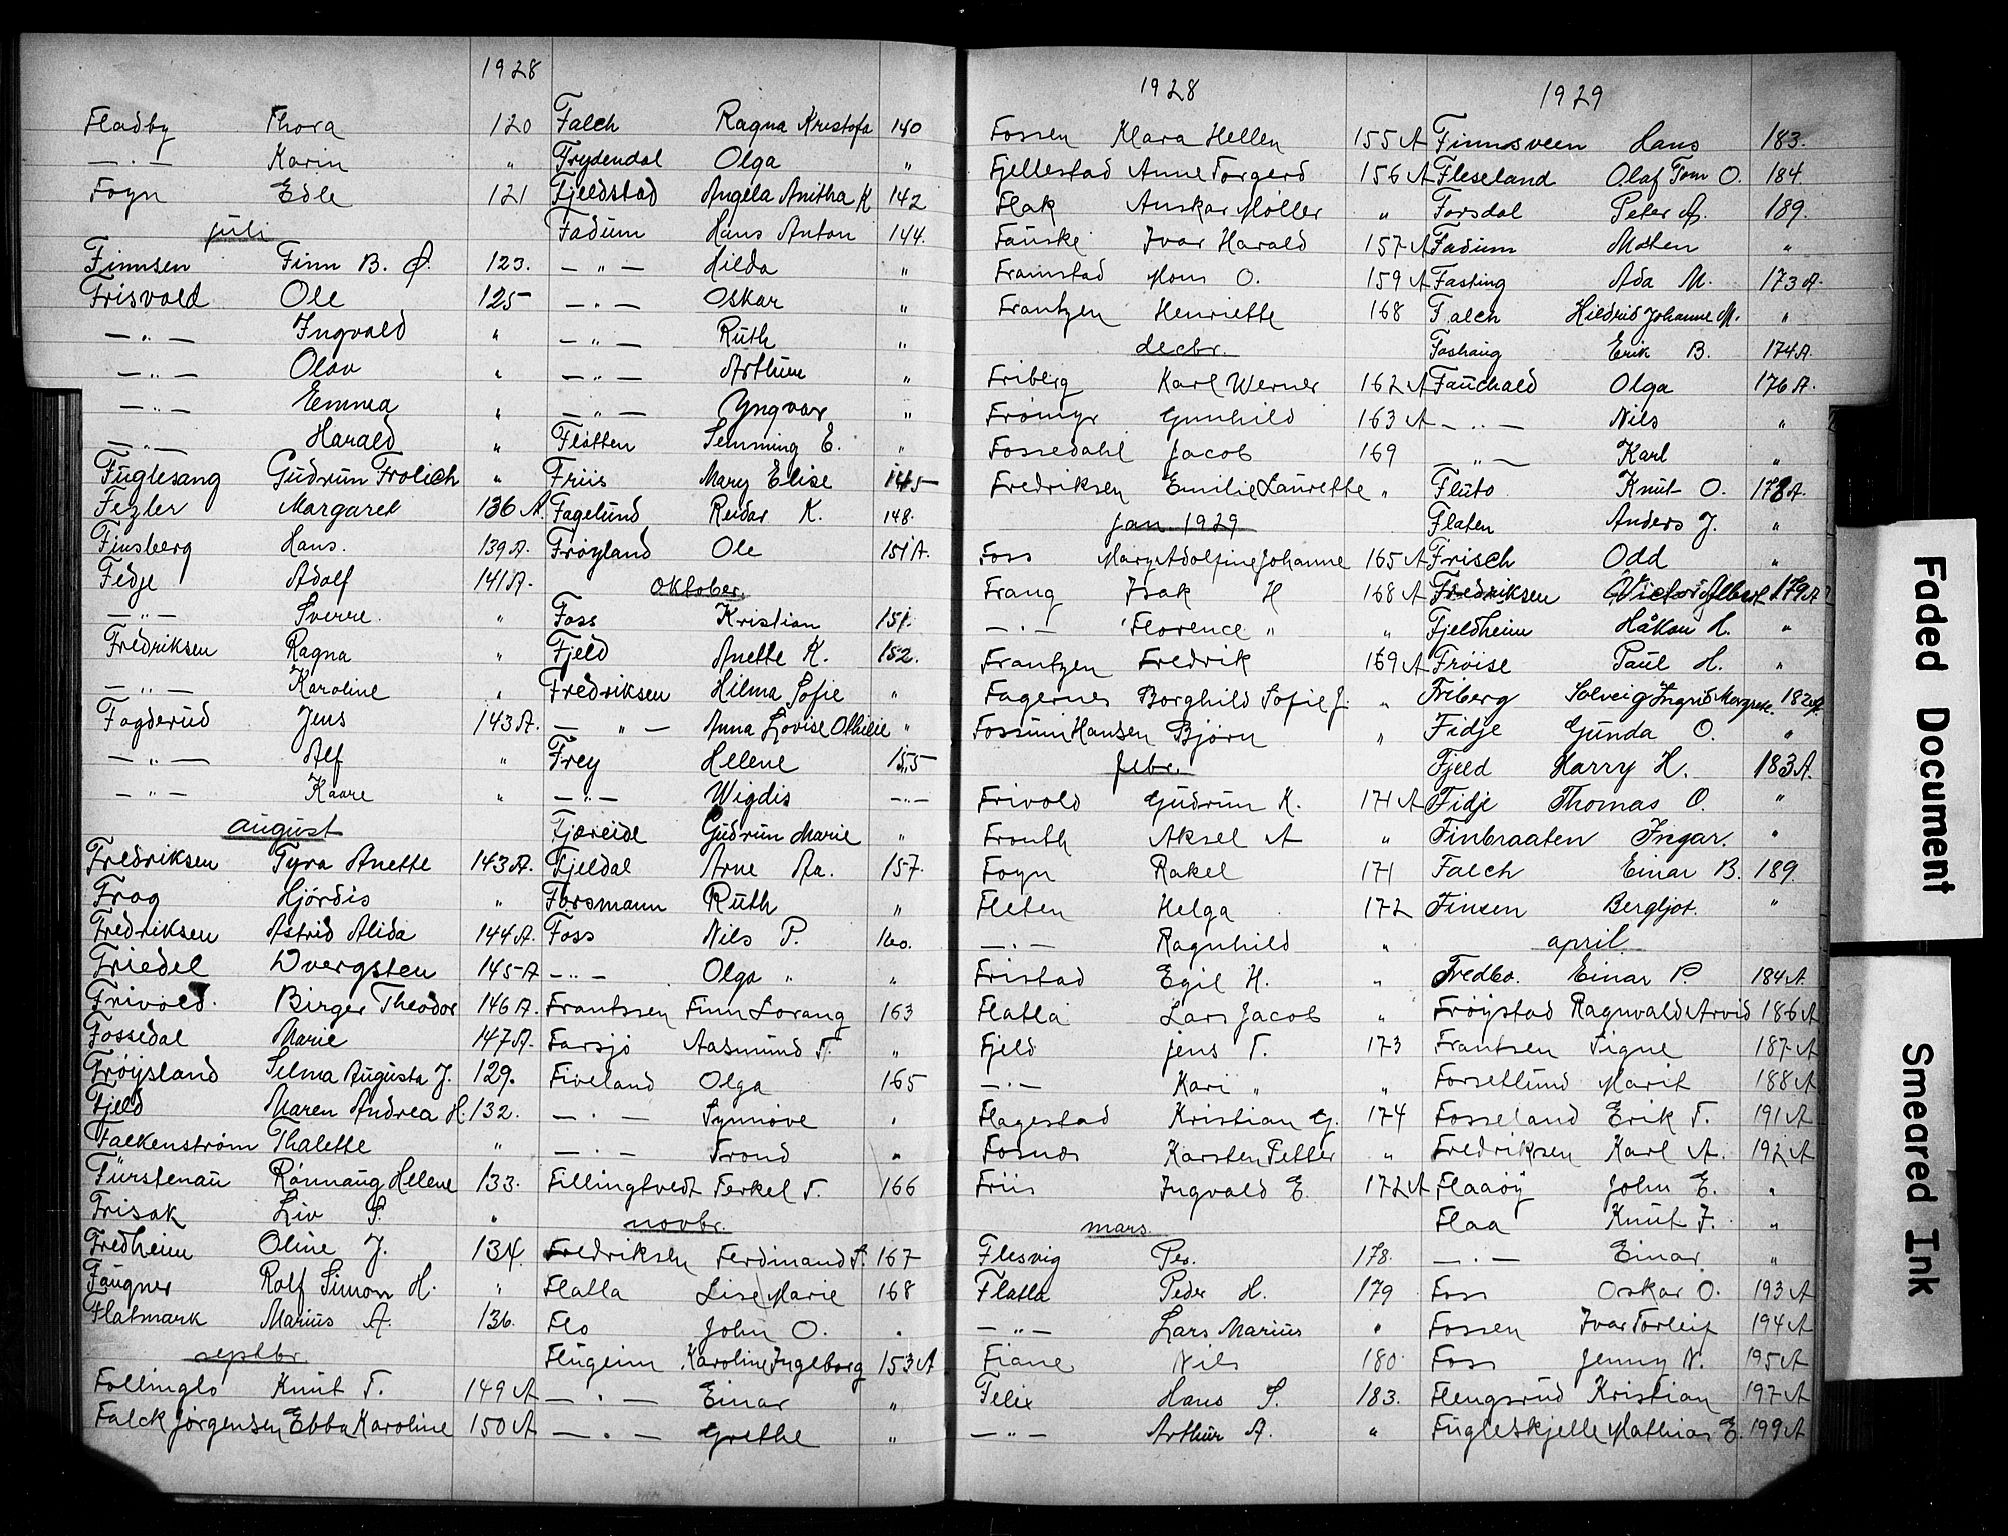 1928
Fladby Thora 120
— . — Karin "
Foyn Edle 121
juli
Finnsen Finn B. Ø. 123.
Frisvold Ole 125
— " — Ingvald "
— " — Olav "
— " — Emma "
— " — Harald "
Fuglesang Gudrun Frolich "
Fezler Margaret 136 A.
Finsberg Hans. 139 A.
Fedje Adolf 141 A.
— " — Sverre. "
Fredriksen Ragna "
— " — Karoline "
Fagderud Jens 143 A.
— " — Alf "
— " — Kaare "
august
Fredriksen Tyra Anette 143 A.
Frog Hjördis "
Fredriksen Astrid Alida 144 A.
Friedel Dvergsten 145 A
Frivold. Birger Theodor 146 A.
Fossedal Marie 147 A.
Frøysland Selma Augusta J. 129.
Fjeld Maren Andrea H. 132.
Falkenstrøm Thalette "
Fürstenau Rønnaug Helene 133.
Frisak Liv S. "
Fredheim Oline J. 134.
Faugner Rolf Simon H. "
Flatmark Marius A. 136.
septbr.
Follinglo Knut T. 149 A
Falck Jørgensen Ebba Karoline 150 A
Falch Ragna Kristofa 140
Frydendal Olga "
Fjeldstad Angela Anitha K 142
Fadum Hans Anton 144.
— " — Hilda "
— . — Oskar "
— " — Ruth "
— " — Arthur "
— " — Yngvar "
Fløtten Semming E. "
Friis Mary Elise 145
Fagelund Reidar K. 148.
Frøyland Ole 151 A.
Oktober.
Foss Kristian 151.
Fjeld Anette K. 152.
Fredriksen Hilma Sofie "
— " — Anna Lovise Othilie "
Frey Helene 155
— " — Wigdis — " —
Fjæreide Gudrun Marie "
Fjeldal Arne Aa. 157.
Forsmann Ruth "
Foss Nils P. 160.
— " — Olga " "
Frantssen Finn Lorang 163
Farsjø Aasmund T. "
Fiveland Olga 165
— . — Synnöve "
— . — Trond "
Fillingtvedt Terkel T. 166
novbr.
Fredriksen Ferdinand S. 167
Flatla Lise Marie 168
Flo John O. "
Flugeim Karoline Ingeborg 153 A
— . — Einar "
— . — Grethe "
1928
Fossen Klara Hellen 155 A
Fjellestad Anne Torgerd 156 A
Flak Anskar Møller "
Fauske Ivar Harald 157 A
Framstad Mons O. 159 A
Frantzen Henriette 168
decbr.
Friberg Karl Werner 162 A
Frömyr Gunhild 163 A
Fossedahl Jacob 169
Fredriksen Emilie Laurette "
Jan 1929
Foss Mary Adolfine Johanne 165 A
Frang Isak H 168 A
— . — Florence " "
Frantzen Fredrik 169 A
Fagernes Borghild Sofie J. "
Fossum Hansen Bjørn "
febr.
Frivold Gudrun K. 171 A
Fronth Aksel A "
Foyn Rakel 171
Fleten Helga 172
— . — Ragnhild "
Fristad Egil H. "
Flatla Lars Jacob "
Fjeld Jens T. 173
— . — Kari " "
Flagestad Kristian G. 174
Fosnæs Karsten Petter "
Friis Ingvald E. 172 A
mars.
Flesvig Per. 178.
Flatla Peder H. 179
— " — Lars Marius "
Fiane Nils 180
Felix Hans S. 183.
— " — Arthur A. "
1929
Finnsveen Hans 183.
Fleseland Olaf Tom O. 184.
Forsdal Peter A. 189.
Fadum Morten "
Fasting Ada M. 173 A.
Falch Hildrid Johanne M. "
Foshaug Erik B. 174 A.
Fauchald Olga 176 A.
— . — Nils "
— " — Karl "
Fluto Knut O. 178 A.
Flaten Anders J. "
Frisch Odd "
Fredriksen Victor Albert 179 A
Fjeldheim Håkon H. "
Fröise Paul H. "
Friberg Solveig Ingrid Margrete. 182 A.
Fidje Gunda O. "
Fjeld Harry H. 183 A.
Fidje Thomas O. "
Finbraaten Ingar. "
Falch Einar B. 189.
Finsen Bergljot. "
april
Fredbo. Einar P. 184 A.
Frøystad Ragnvald Arvid 186 A
Frantsen Signe 187 A
Forsetlund Marit 188 A
Fosseland Erik T. 191 A
Fredriksen Karl A. 192 A
Flaaöy John E. "
Flaa Knut J. "
— . — Einar "
Foss Oskar O. 193 A
Fossen Ivar Torleif 194 A
Foss Jenny N. 195 A
Flengsrud Kristian 197 A
Fugleskjelle Mathias E. 199 A
Faded Document
Smeared Ink